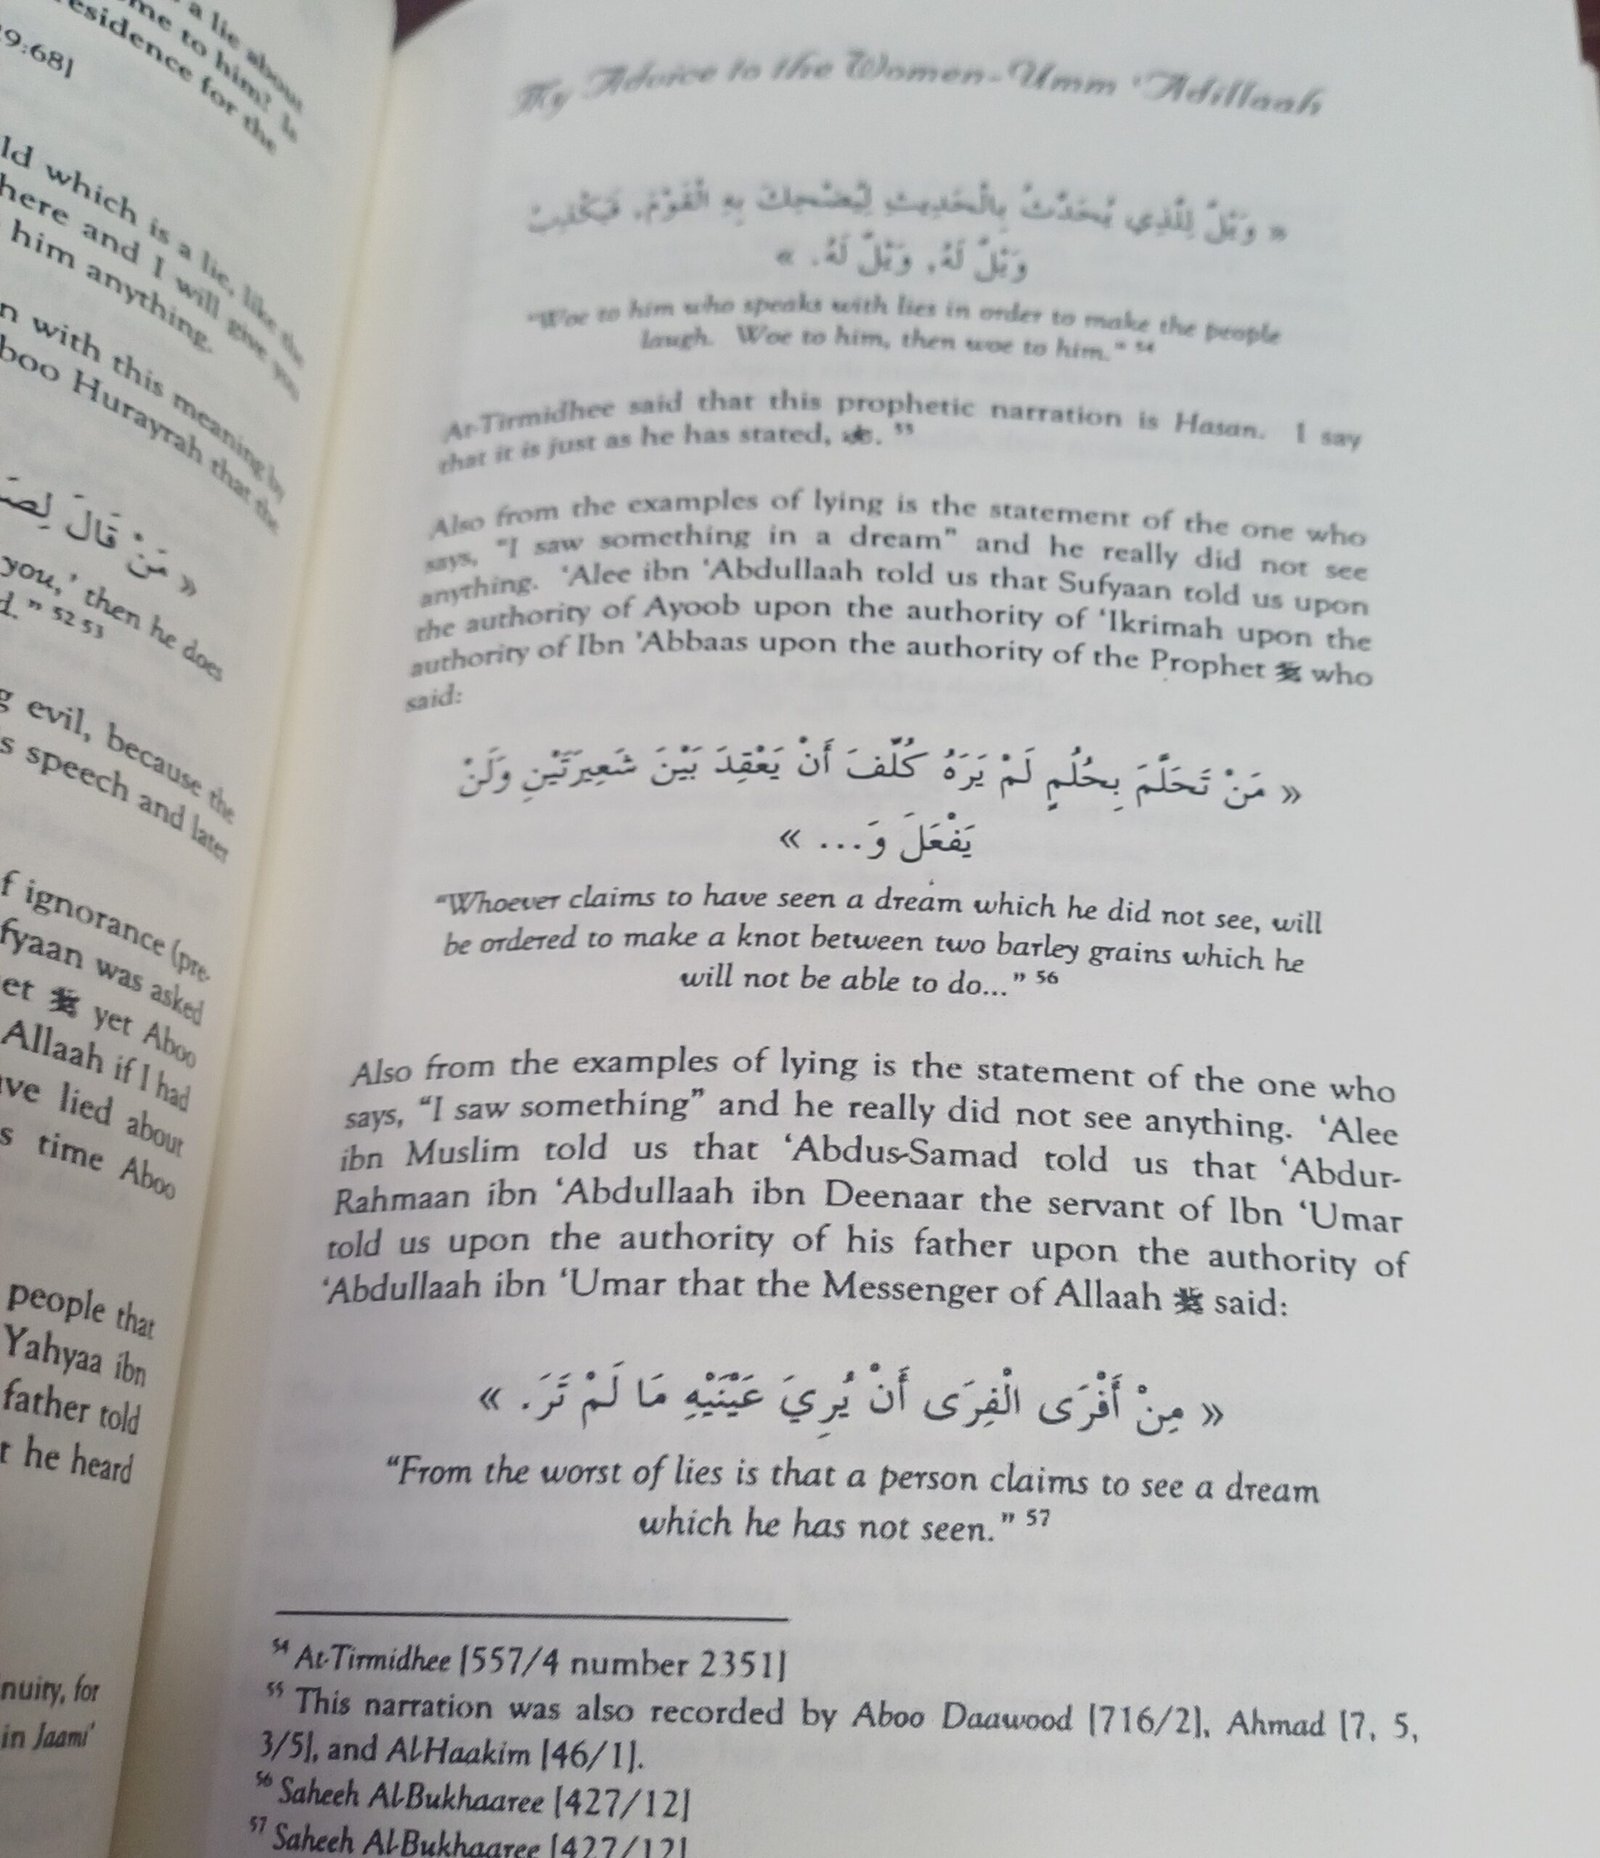 a lie about
me to him? Is
residence for the
29:68]
ld which is a lie, like the
here and I will give you
him anything.
n with this meaning by
boo Hurayrah that the
« مَنْ قَالَ
you,' then he does
d. " 52 53
g evil, because the
s speech and later
f ignorance (pre-
fyaan was asked
et ﷺ yet Aboo
Allaah if I had
ave lied about
s time Aboo
people that
Yahyaa ibn
father told
t he heard
nuity, for
in Jaami'
My Advice to the Women-Umm 'Abdillaah
« وَيْلٌ لِلَّذِي يُحَدِّثُ بِالْحَدِيثِ لِيُضْحِكَ بِهِ الْقَوْمَ، فَيَكْذِبُ
وَيْلٌ لَهُ، وَيْلٌ لَهُ. »
"Woe to him who speaks with lies in order to make the people
laugh. Woe to him, then woe to him." 54
At-Tirmidhee said that this prophetic narration is Hasan. I say
that it is just as he has stated, . 55
Also from the examples of lying is the statement of the one who
says, "I saw something in a dream" and he really did not see
anything. 'Alee ibn 'Abdullaah told us that Sufyaan told us upon
the authority of Ayoob upon the authority of 'Ikrimah upon the
authority of Ibn 'Abbaas upon the authority of the Prophet ﷺ who
said:
« مَنْ تَحَلَّمَ بِحُلُمٍ لَمْ يَرَهُ كُلِّفَ أَنْ يَعْقِدَ بَيْنَ شَعِيرَتَيْنِ وَلَنْ
يَفْعَلَ وَ... »
"Whoever claims to have seen a dream which he did not see, will
be ordered to make a knot between two barley grains which he
will not be able to do..." 56
Also from the examples of lying is the statement of the one who
says, "I saw something" and he really did not see anything. 'Alee
ibn Muslim told us that 'Abdus-Samad told us that 'Abdur-
Rahmaan ibn 'Abdullaah ibn Deenaar the servant of Ibn 'Umar
told us upon the authority of his father upon the authority of
'Abdullaah ibn 'Umar that the Messenger of Allaah ﷺ said:
« مِنْ أَفْرَى الْفِرَى أَنْ يُرِيَ عَيْنَيْهِ مَا لَمْ تَرَ. »
"From the worst of lies is that a person claims to see a dream
which he has not seen." 57
54 At-Tirmidhee [557/4 number 2351]
55 This narration was also recorded by Aboo Daawood [716/2], Ahmad [7, 5,
3/5], and Al-Haakim [46/1].
56 Saheeh Al-Bukhaaree [427/12]
57 Saheeh Al-Bukhaaree [427/12]